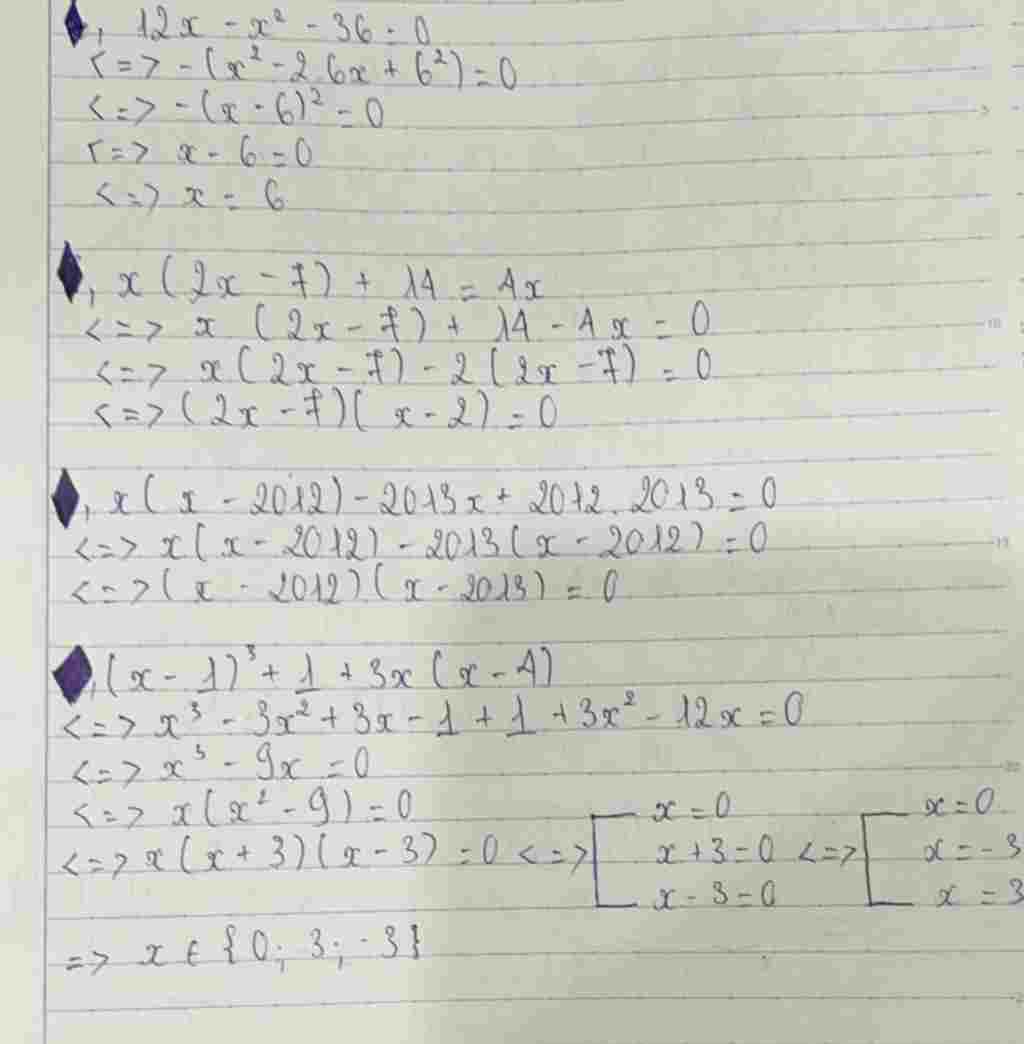 , 12x - x² - 36 = 0
<=> -(x² - 2.6x + 6²) = 0
<=> -(x - 6)² = 0
<=> x - 6 = 0
<=> x = 6
, x(2x - 7) + 14 = 4x
<=> x(2x - 7) + 14 - 4x = 0
<=> x(2x - 7) - 2(2x - 7) = 0
<=> (2x - 7)(x - 2) = 0
, x(x - 2012) - 2013x + 2012.2013 = 0
<=> x(x - 2012) - 2013(x - 2012) = 0
<=> (x - 2012)(x - 2013) = 0
, (x - 1)³ + 1 + 3x(x - 4)
<=> x³ - 3x² + 3x - 1 + 1 + 3x² - 12x = 0
<=> x³ - 9x = 0
<=> x(x² - 9) = 0
<=> x(x + 3)(x - 3) = 0 <=> [ x = 0
x + 3 = 0
x - 3 = 0
<=> [ x = 0
x = -3
x = 3
=> x ∈ {0; 3; -3}